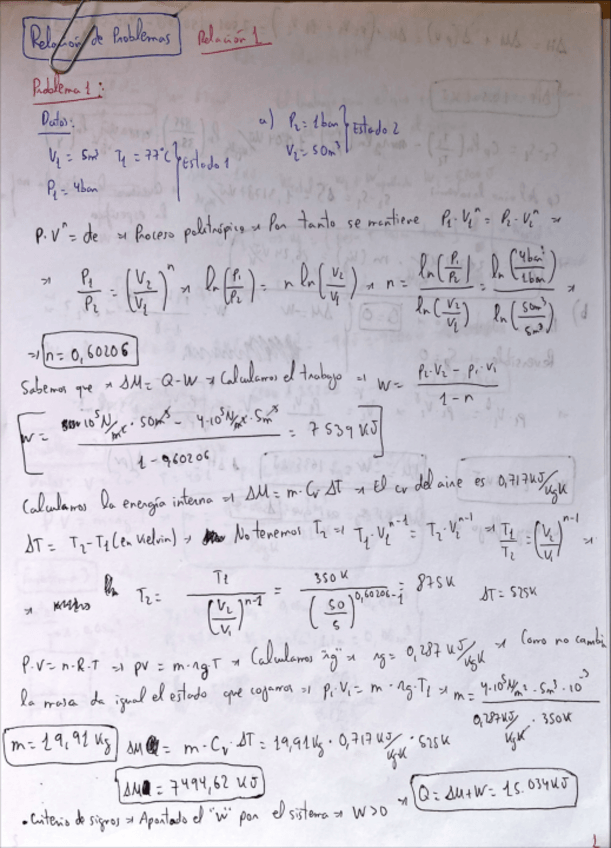 Relación de Problemas Relación 1
Problema 1:
Datos: a) P₂ = 1 bar } Estado 2
V₁ = 5m³ T₁ = 77°C } Estado 1 V₂ = 50m³
P₁ = 4bar
P·Vⁿ = cte → Proceso politrópico → Por tanto se mantiene P₁·V₁ⁿ = P₂·V₂ⁿ →
→ P₁/P₂ = (V₂/V₁)ⁿ → ln(P₁/P₂) = n ln(V₂/V₁) → n = ln(P₁/P₂)/ln(V₂/V₁) = ln(4bar/1bar)/ln(50m³/5m³) →
→ n = 0,60206
Sabemos que → ΔM = Q - W → Calculamos el trabajo → W = (P₂·V₂ - P₁·V₁)/(1-n)
W = (10⁵N/m²·50m³ - 4·10⁵N/m²·5m³)/(1-0,60206) = 7539 KJ
Calculamos la energía interna → ΔM = m·Cv ΔT → El cv del aire es 0,717KJ/KgK
ΔT = T₂-T₁ (en Kelvin) → No tenemos T₂ → T₁·V₁ⁿ⁻¹ = T₂·V₂ⁿ⁻¹ → T₁/T₂ = (V₂/V₁)ⁿ⁻¹ →
→ T₂ = T₁/(V₂/V₁)ⁿ⁻¹ = 350K/(50/5)^(0,60206-1) = 875K ΔT = 525K
P·V = n·R·T → PV = m·rg·T → Calculamos "rg" → rg = 0,287 KJ/KgK → Como no cambia
la masa da igual el estado que cojamos → P₁·V₁ = m·rg·T₁ → m = (4·10⁵N/m²·5m³·10⁻³)/(0,287KJ/KgK·350K)
m = 19,91 Kg ΔM = m·Cv·ΔT = 19,91Kg·0,717KJ/KgK·525K
ΔM = 7494,62 KJ → Q = ΔM+W = 15.034KJ
• Criterio de signos → Aportado el "W" por el sistema → W>0
1